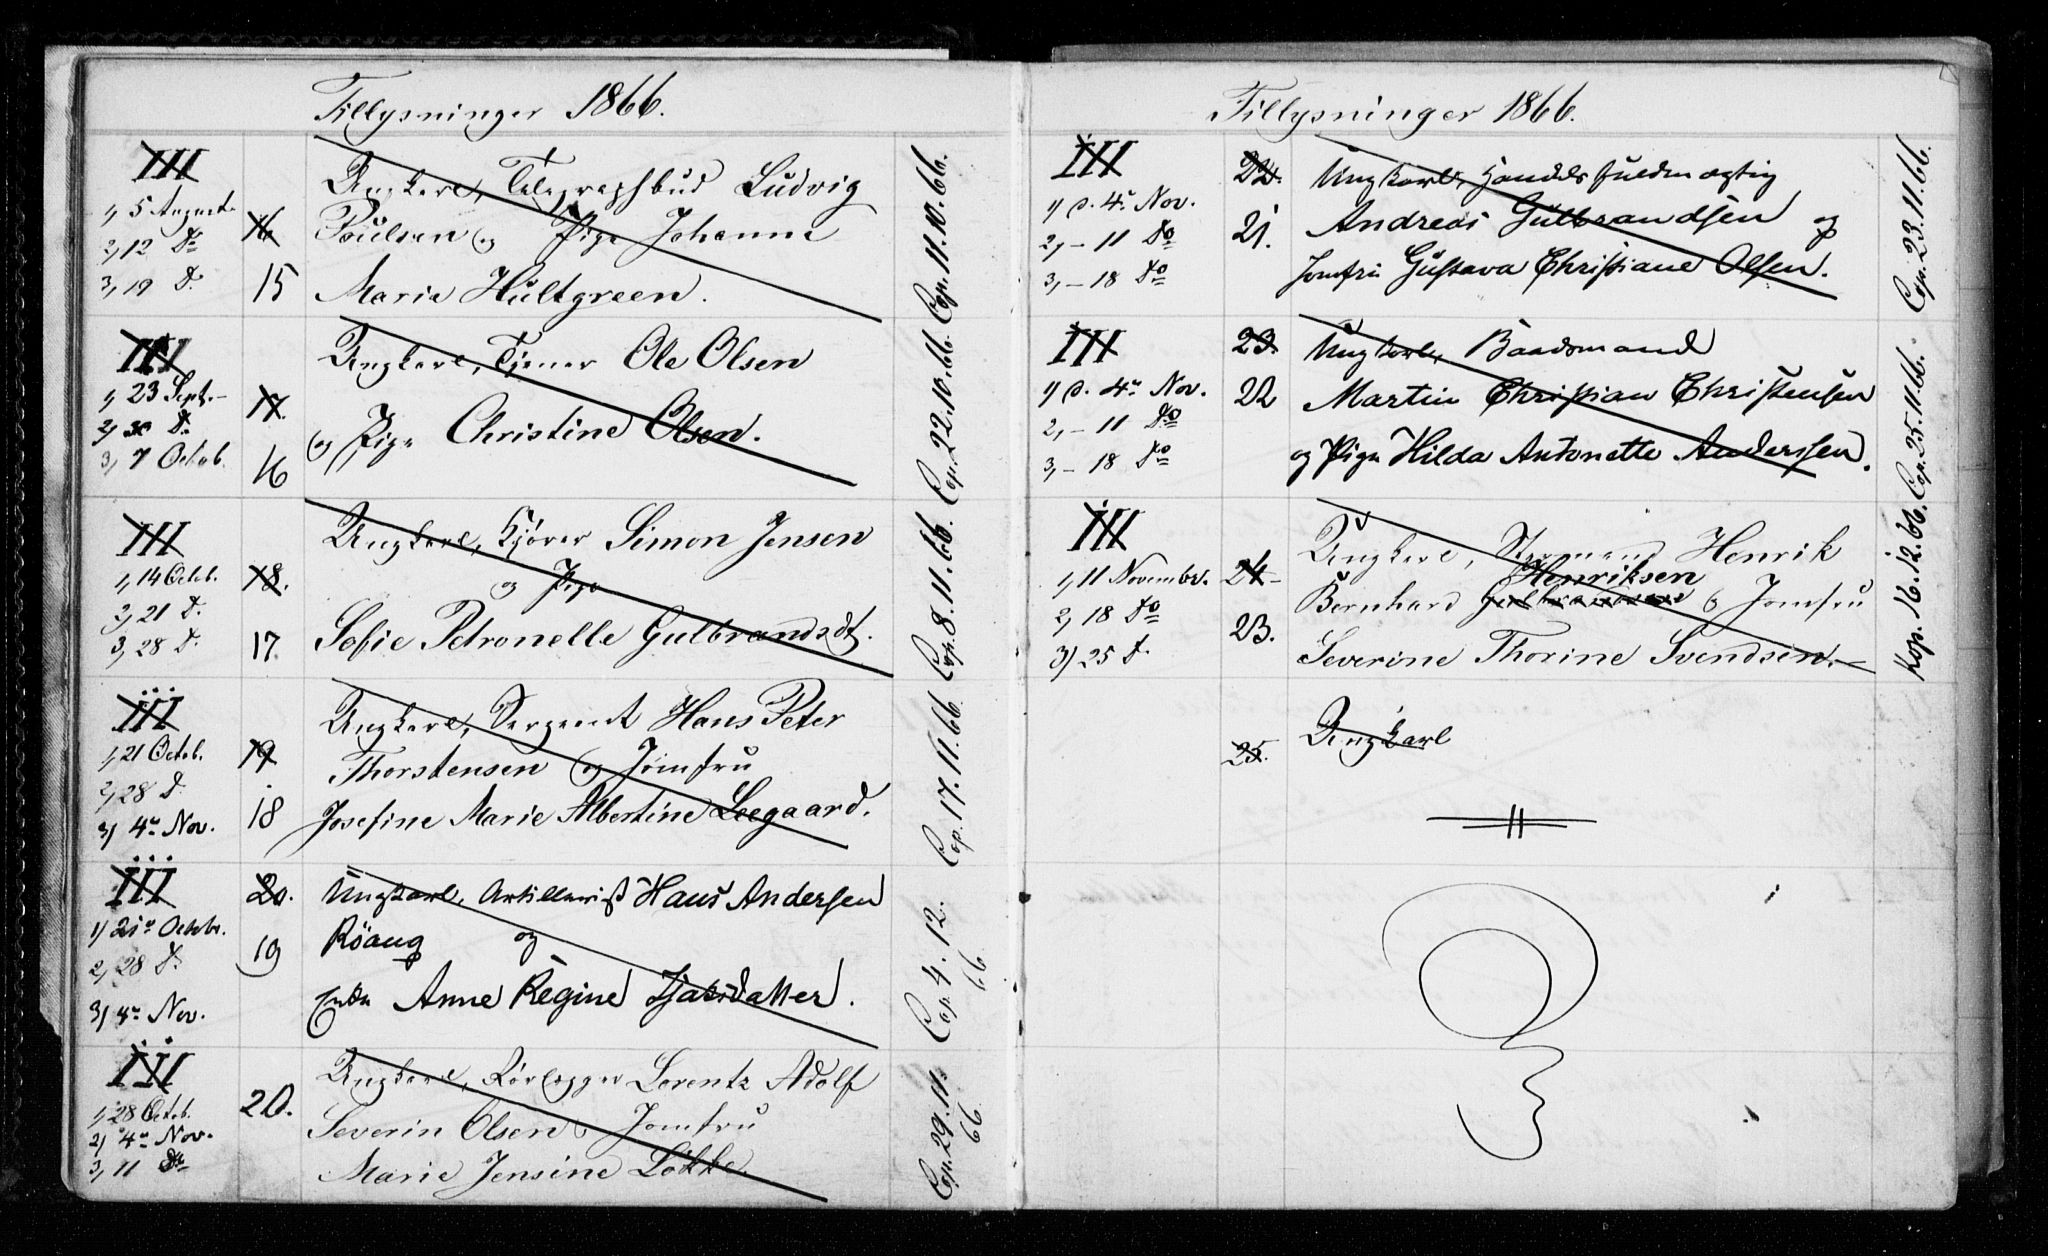 Tillysninger 1866.
III
1, 5 August.
2, 12 Do
3, 19 D.
16
15
Ungkarl, Telegraphbud Ludvig
Poulsen og Pige Johanne
Marie Hultgreen.
Cop. 11.10.66.
III
1, 23 Sept.
2) 30 D.
3, 7 Octob.
17.
16
Ungkarl, Tjener Ole Olsen
og Pige Christine Olsen.
Cop. 22.10.66.
III
1, 14 Octob.
2, 21 D.
3, 28 D.
18.
17.
Ungkarl, Kjører Simon Jensen
og Pige
Sofie Petronelle Gulbrandsdt.
Cop. 8.11.66.
III
1, 21 Octob.
2, 28 D.
3) 4de Nov.
19
18
Ungkarl, Sergeant Hans Peter
Thorstensen og Jomfru
Josefine Marie Albertine Leegaard.
Cop. 17.11.66
III
1) 21de Octobr.
2, 28 D.
3) 4de Nov.
20.
19
Ungkarl, Artillerist Hans Andersen
Röang og
Enke Anne Regine
Cop. 4.12.
66
III
1, 28 Octob.
2) 4de Nov.
3, 11 Do
20.
Ungkarl, Rørlægger Lorentz Adolf
Severin Olsen & Jomfru
Marie Jensine Løkke.
Cop. 29.11.
66
Tillysninger 1866.
III
1) d. 4de Nov.
2, – 11 Do
3, – 18 Do
22.
21.
Ungkarl, Handelsfuldmægtig
Andreas Gulbrandsen og
Jomfru Gustava Christiane Olsen.
Cop. 23.11.66.
III
1) d. 4de Nov.
2, – 11 Do
3, – 18 Do
23.
22
Ungkarl, Baadsmand
Martin Christian Christensen
og Pige Hilda Antonette Anderssen.
Cop. 25.11.66.
III
1, 11 Novembr.
2, 18 Do
3) 25 D.
24
23.
Ungkarl, Styrmand Henrik
Henriksen
Bernhard Gulbrandsen & Jomfru
Severine Thorine Svendsen.
Kop. 16.12.66.
25.
Ungkarl